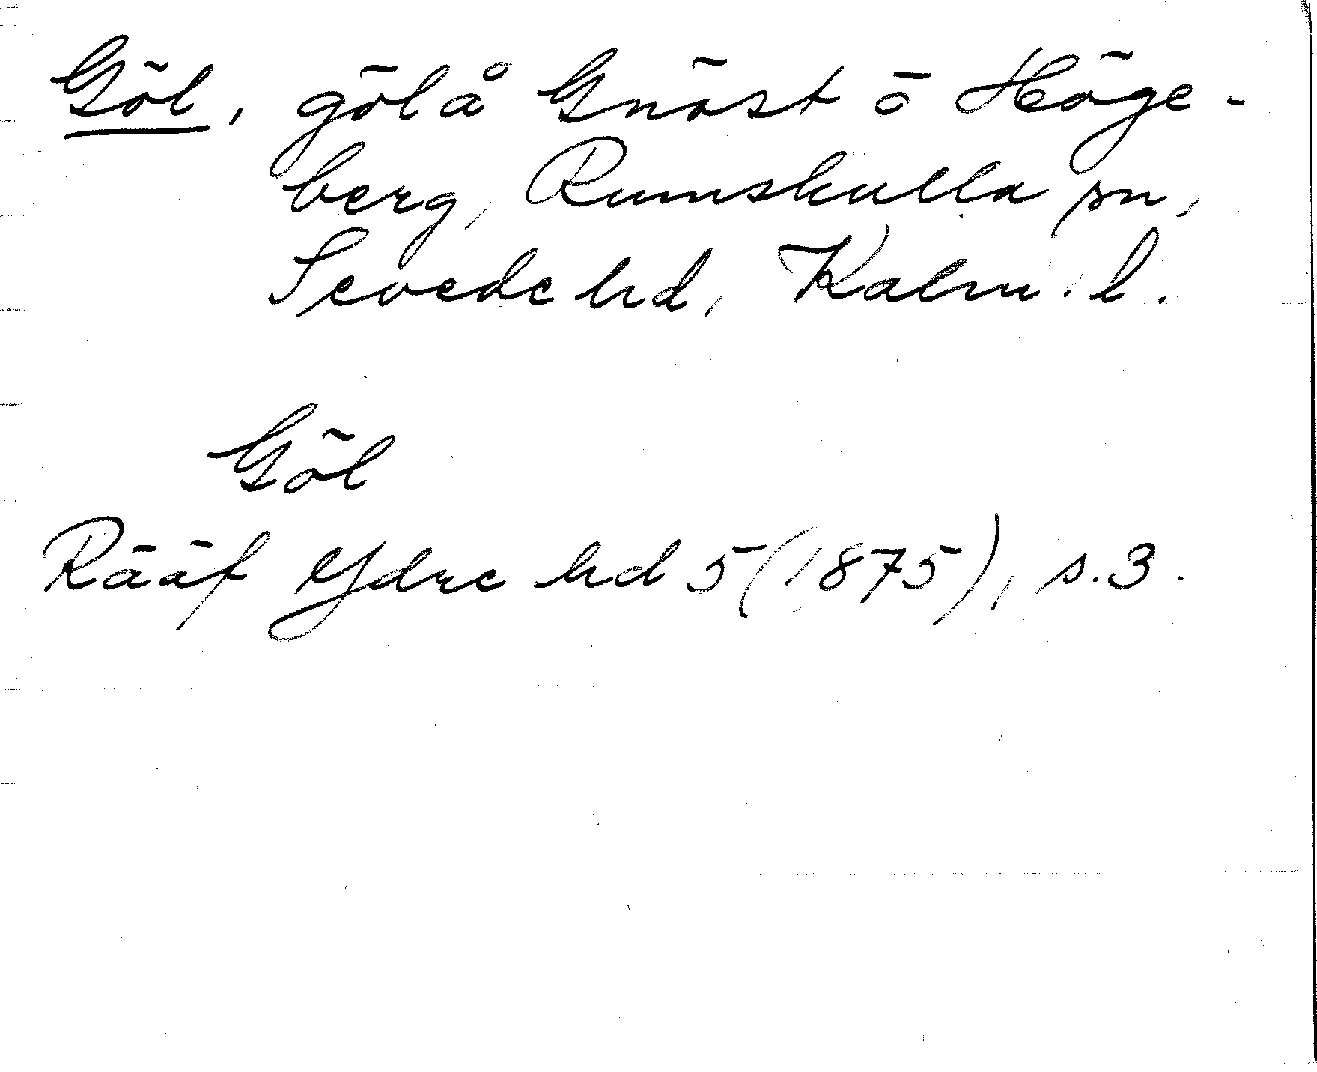 Göl, göl å Gnöst ö Höge-
berg, Rumskulla sn,
Sevede hd, Kalm. l.
Göl
Rääf Ydre hd 5 (1875), s. 3.